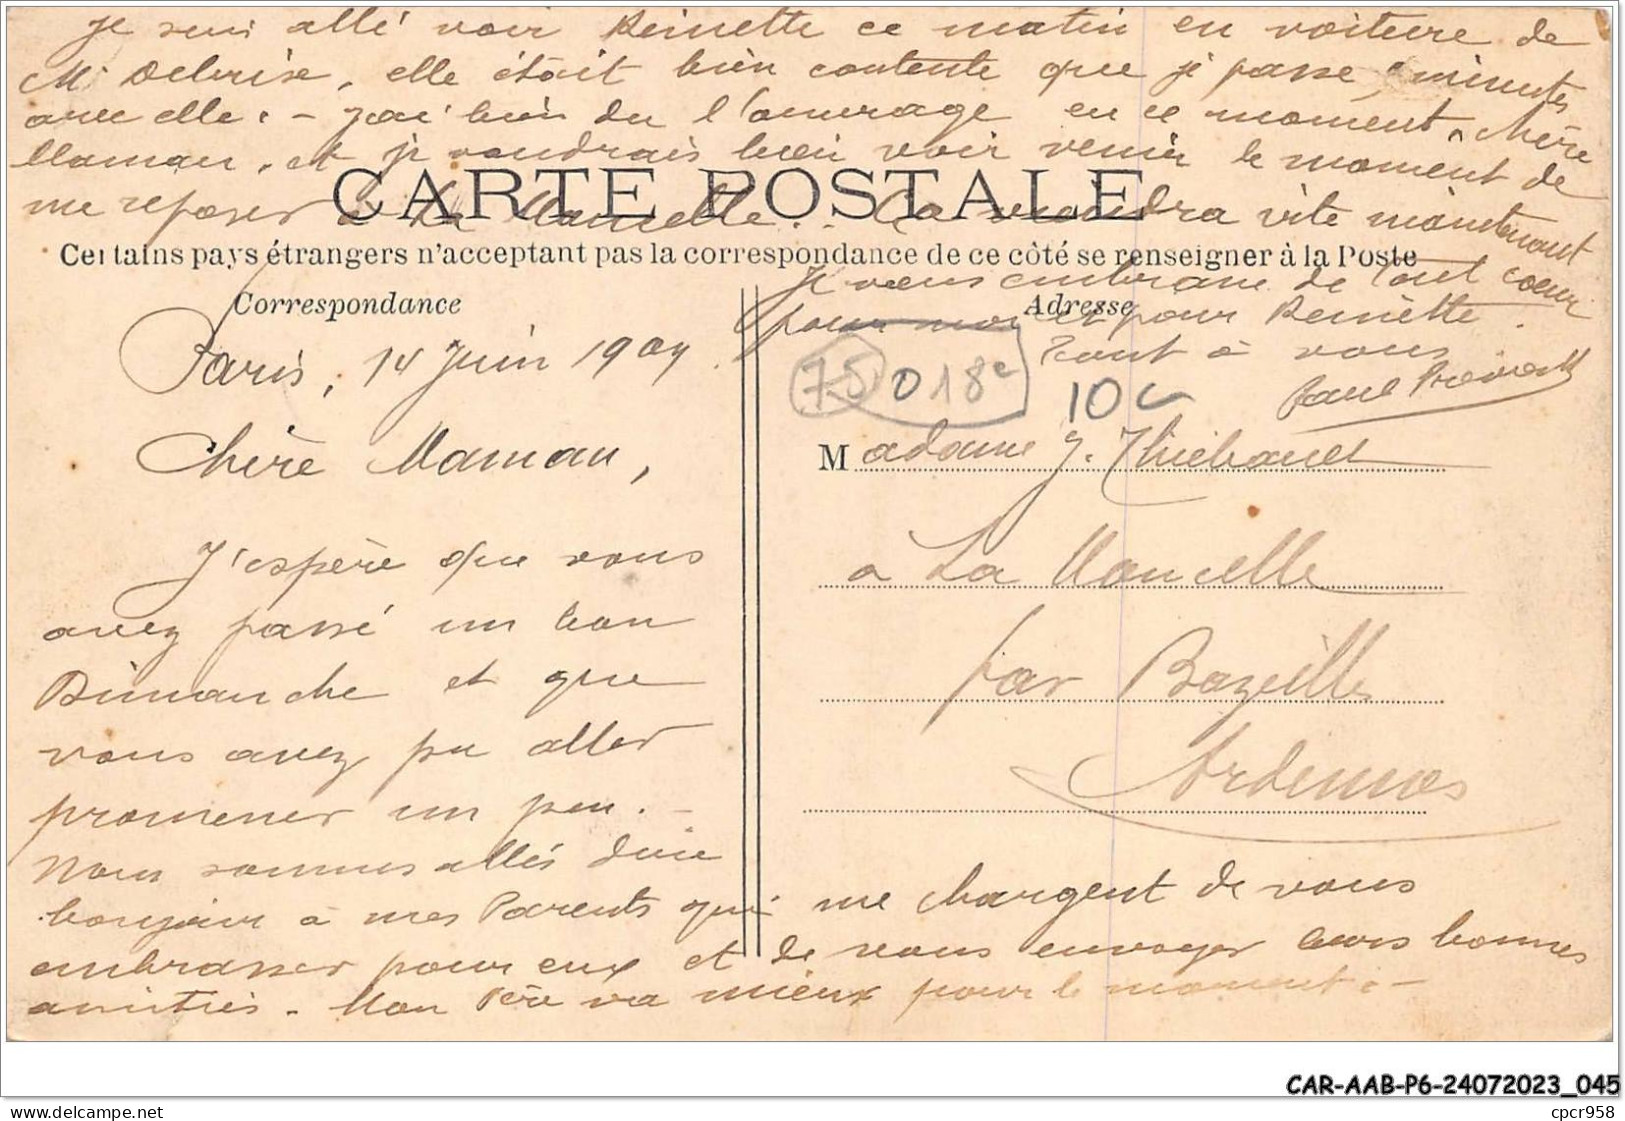 je suis allé voir Reinette ce matin en voiture de
Mr Debrise, elle était bien contente que je passe minutes
avec elle. - J'ai bien du l'ouvrage en ce moment, Chère
Maman, et je voudrais bien voir venir le moment de
me reposer à La Moncelle. Ca viendra vite maintenant
CARTE POSTALE
Certains pays étrangers n'acceptant pas la correspondance de ce côté se renseigner à la Poste
Je vous embrasse de tout coeur
pour moi et pour Reinette.
Tout à vous
Paul
Correspondance
Adresse
Paris, 14 Juin 1909.
Chère Maman,
J'espère que vous
avez passé un bon
Dimanche et que
vous avez pu aller
promener un peu. -
Nous sommes allés dire
bonjour à mes Parents qui me chargent de vous
embrasser pour eux et de vous envoyer leurs bonnes
amitiés. - Mon Père va mieux pour le moment. -
75 018e
10c
Madame J. Thiébault
à La Moncelle
par Bazeilles
Ardennes
CAR-AAB-P6-24072023_045
www.delcampe.net
cpcr958